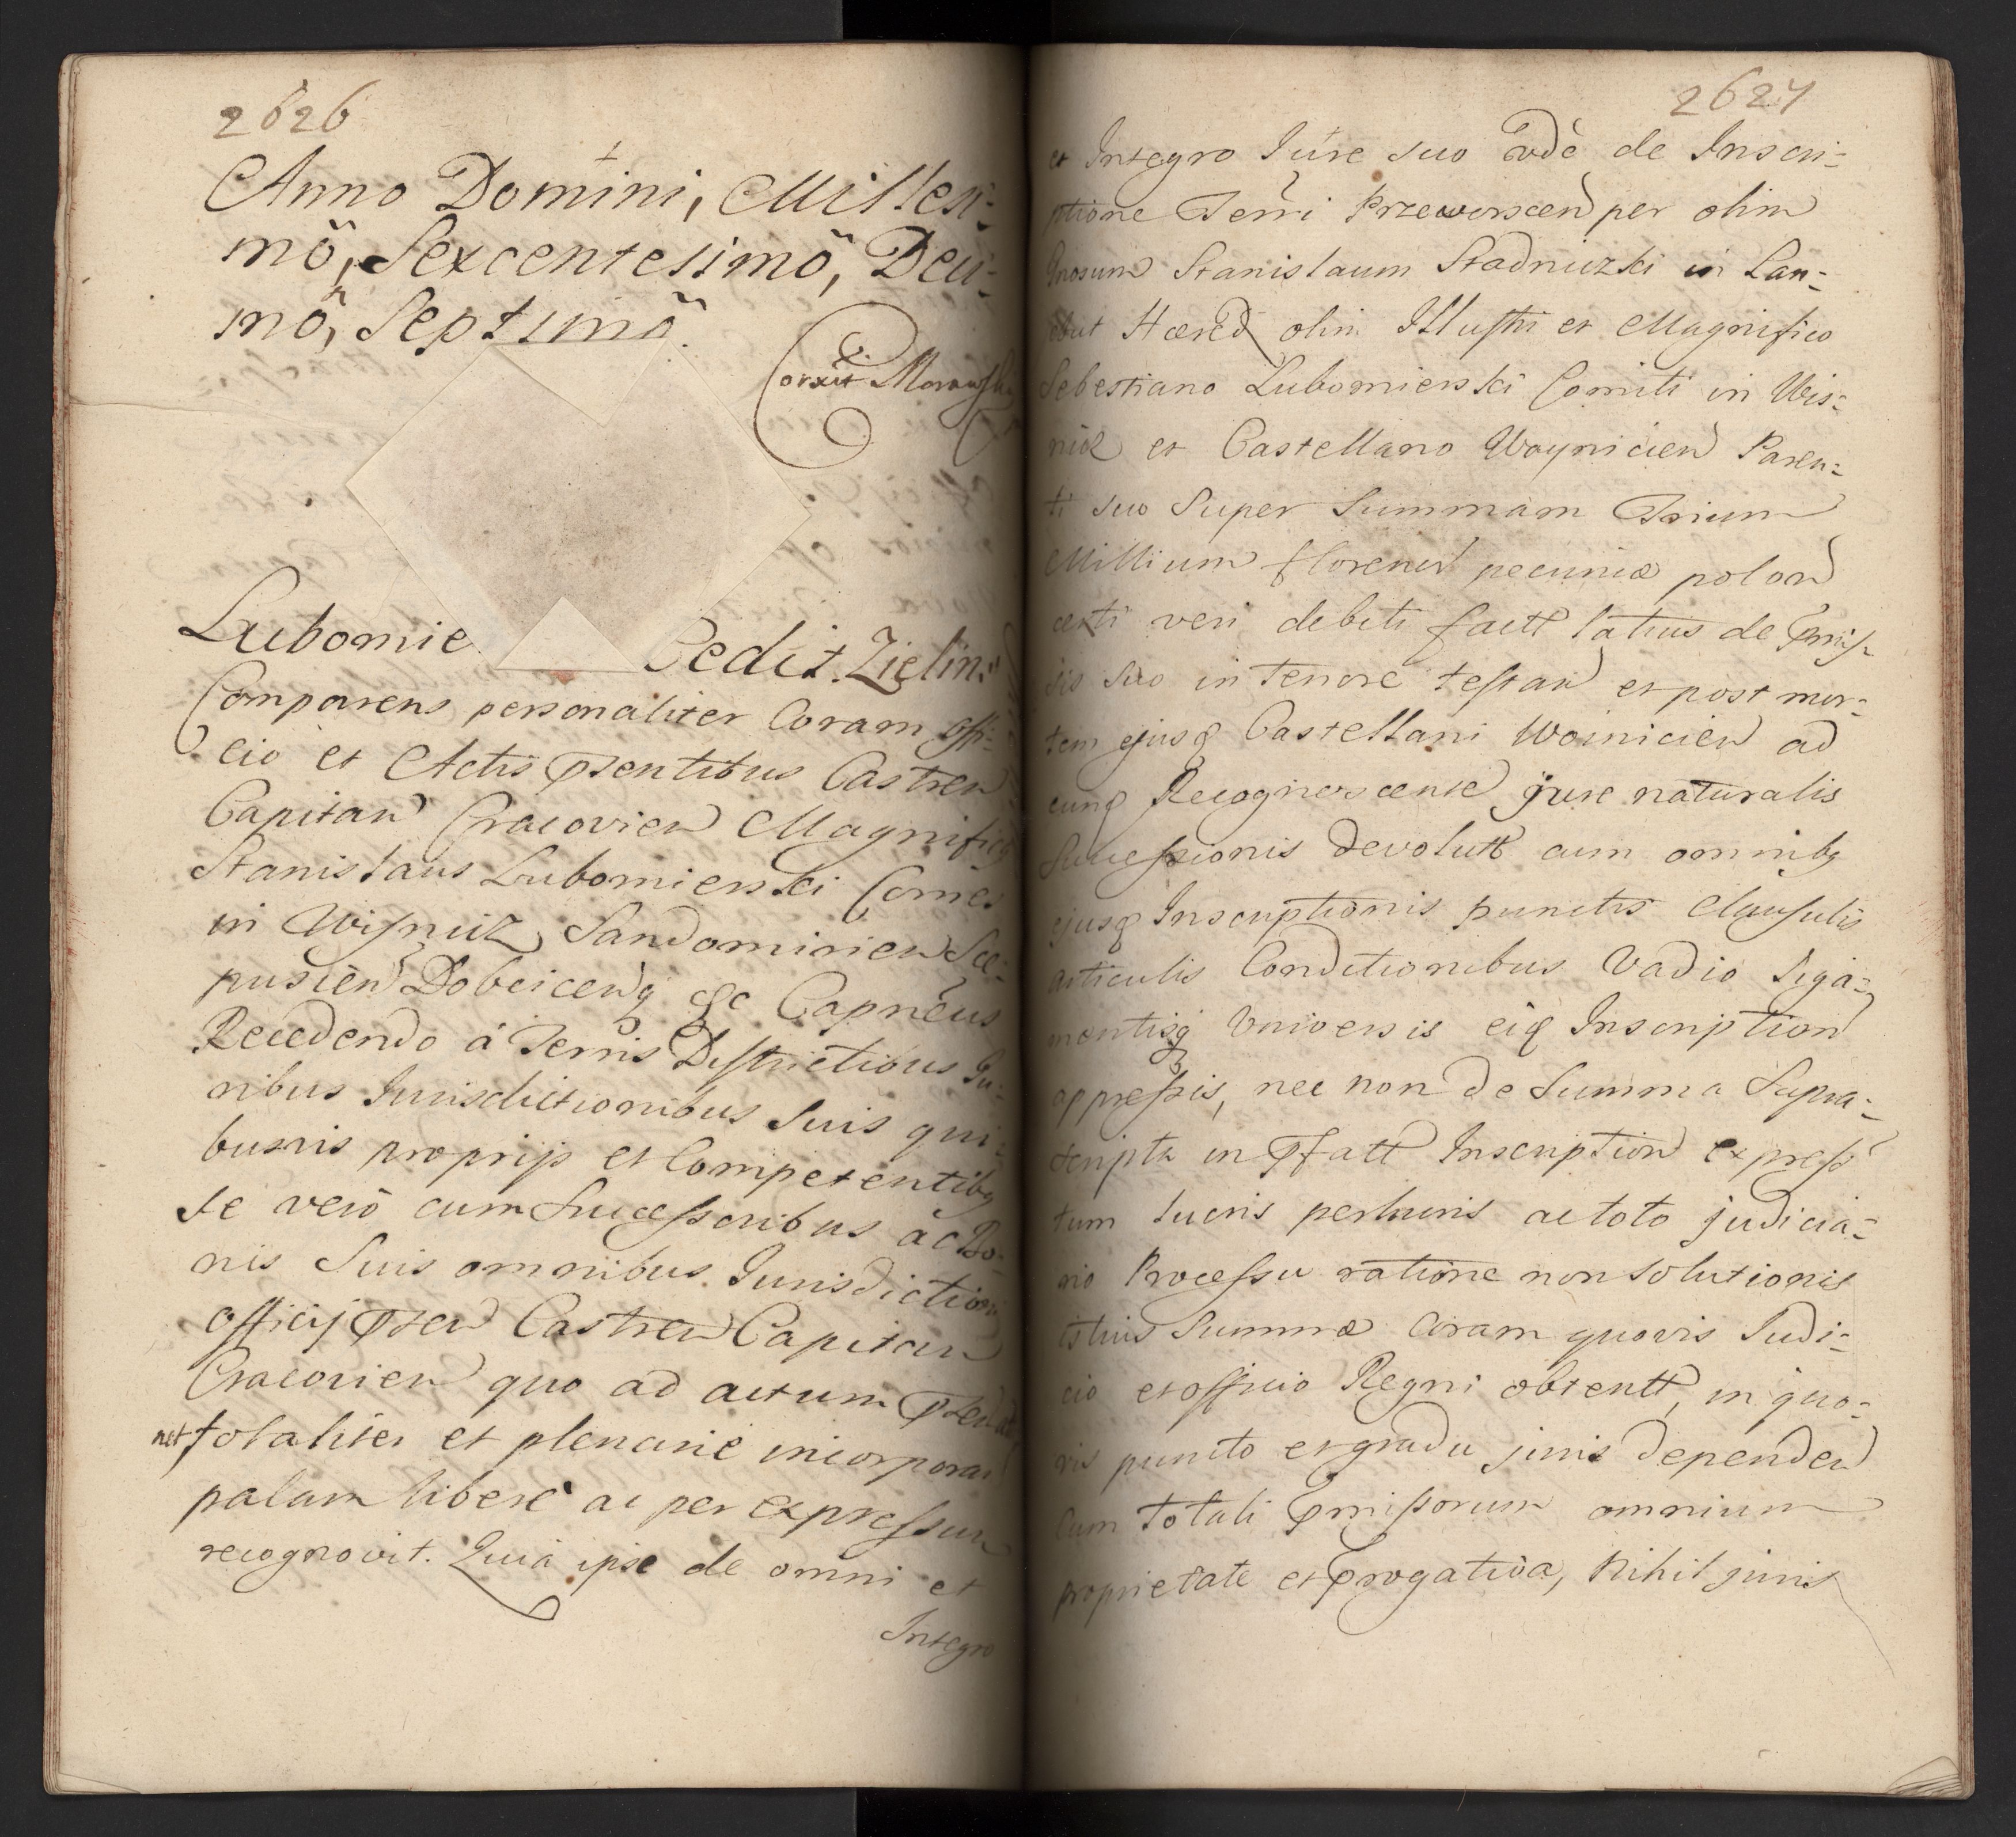 2626
Anno Domini, Millesi:
mô, Sexcentesimô, Deci:
mô, Septimô.
Corxit Moraws
Lubomie Cedit. Zielin:
Comparens personaliter Coram offi:
cio et Actis Pńtentibus Castren
Capitan Cracovien Magnificus
Stanislaus Lubomierski Comes
in Wisnicz, Sandomirien Sce:
pusien Dobcicenq &c Capneus
Recedendo á Terris Districtibus Iu:
ribus Iurisdictionibus Suis qui:
busvis proprijs et Competentibq
se verò cum Successoribus ac Bo:
nis Suis omnibus Iurisdictioni
officij Pnten Castren Capitan
Cracovien quo ad actum Pnten
net totaliter et plenarie incorporan
palam libere ac per expressum
recognovit. Quia ipse de omni et
Integro
2627
et Integro Iure suo de Inscri:
ptione Terri Przeworscen per olim
Gnosum Stanislaum Stadnizki in Lan:
cut Hæred olim Illustri et Magnifico
Sebestiano Lubomierski Comiti in Wis:
nicz et Castellano Woynicien Paren:
ti suo Super Summam Trium
Millium florenor pecuniæ polon
certi veri debiti factt latius de Pmis:
sis suo in tenore testan et post mor:
tem ejusq Castellani Woinicien ad
eunq Recognoscente jure naturalis
Successionis devolutt cum omnibq
ejusq Inscriptionis punctis Clausulis
articulis Conditionibus Vadio liga:
mentisq Universis eiq Inscription
appressis, nec non de Summa Supra:
scripta in Pfatt Inscription express
tum lucris perlucris ac toto judicia:
rio Processu ratione non solutionis
istius Summæ Coram quovis Iudi:
cio et officio Regni obtentt, in quo:
vis puncto et gradu juris dependen
Cum totali Pmissorum omnium
proprietate et Progativa, Nihil juris